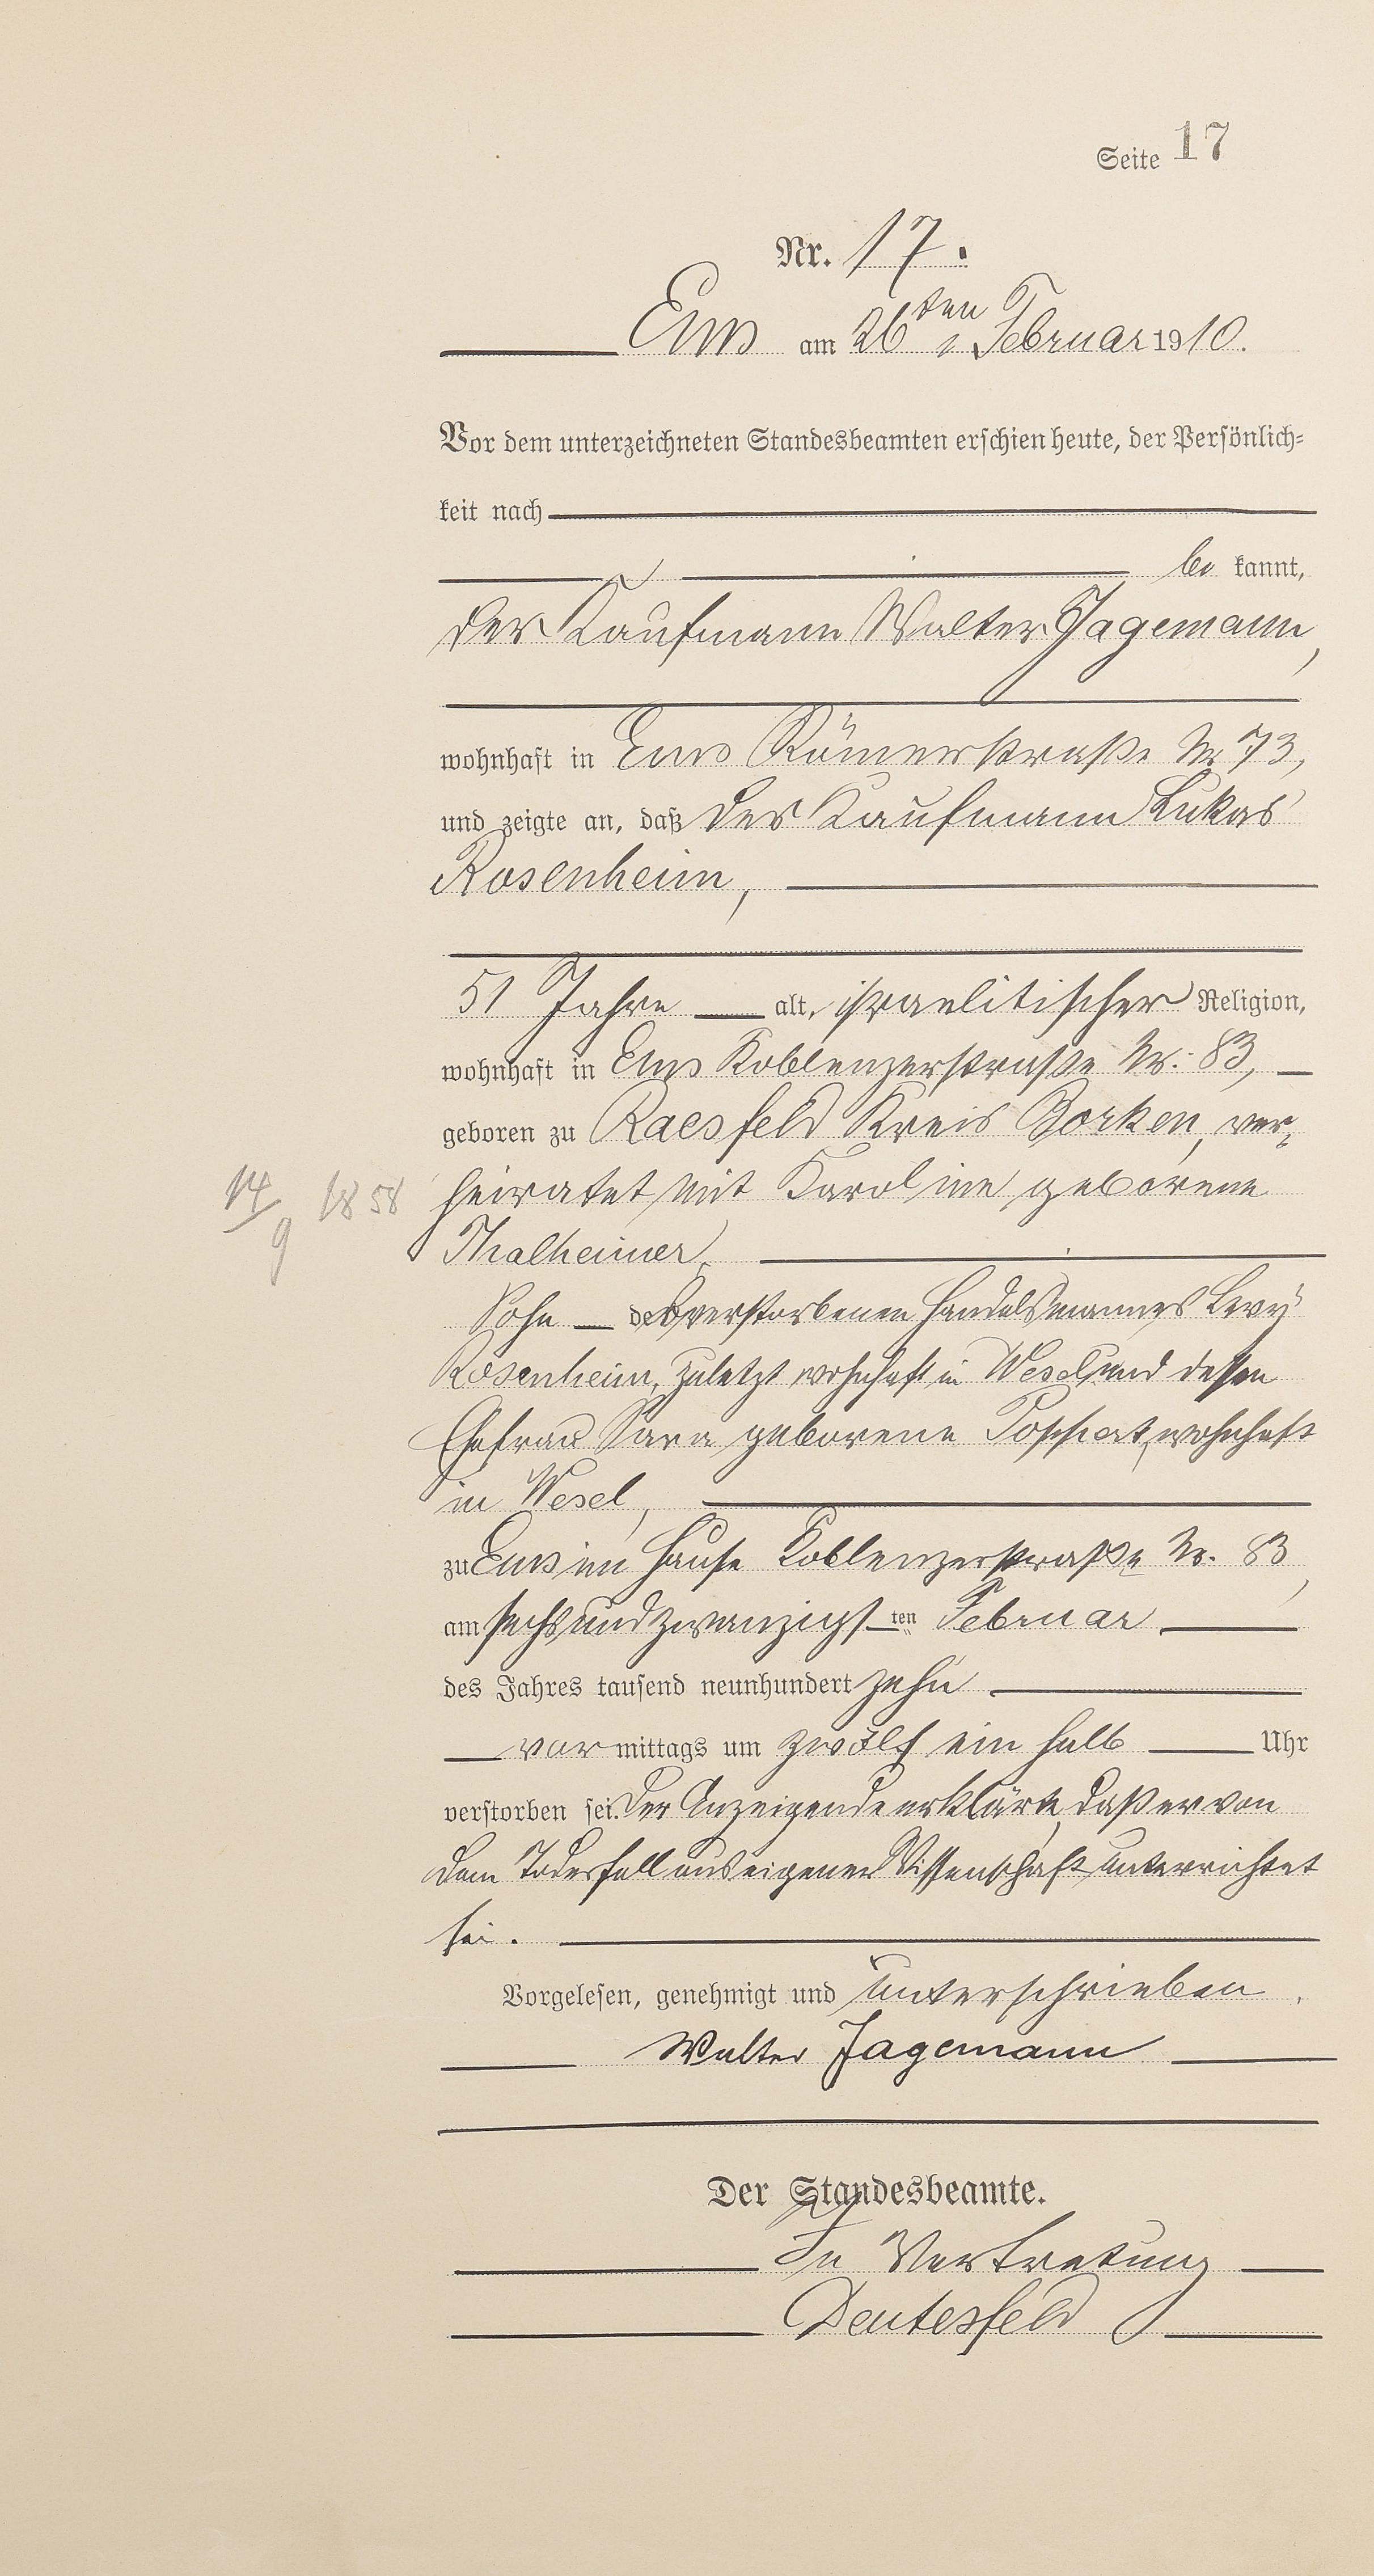 Seite 17
Nr. 17.
Ems am 26ten Februar 1910.
Vor dem unterzeichneten Standesbeamten erschien heute, der Persönlich=
keit nach
be kannt,
der Kaufmann Walter Jagemann,
wohnhaft in Ems Römerstraße Nr 73,
und zeigte an, daß der Kaufmann Lukas
Rosenheim,
51 Jahre alt, israelitischer Religion,
wohnhaft in Ems Koblenzerstraße Nr. 83,
geboren zu Raesfeld Kreis Borken, ver=
14/9 1858
heiratet mit Karoline geborene
Thalheimer,
Sohn des verstorbenen Handelsmannes Levy
Rosenheim, zuletzt wohnhaft in Wesel und dessen
Ehefrau Sara geborene wohnhaft
in Wesel,
zu Ems im Hause Koblenzerstraße Nr. 83,
am sechsundzwanzigsten Februar
des Jahres tausend neunhundert zehn
vor mittags um zwölf ein halb Uhr
verstorben sei. Der Anzeigende erklärte, daß er von
dem Todesfall aus eigener Wissenschaft unterrichtet
sei.
Vorgelesen, genehmigt und unterschrieben.
Walter Jagemann
Der Standesbeamte.
In Vertretung
Deutesfeld